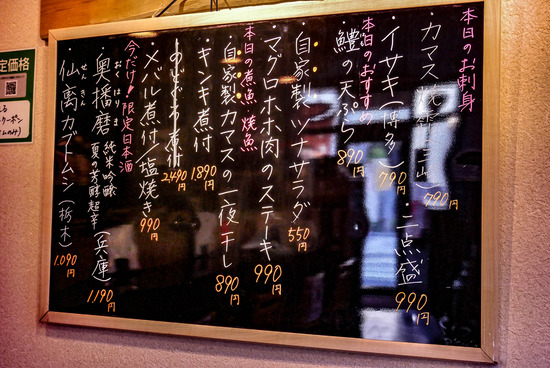 本日のお刺身
・カマス 790円
・イサキ(博多) 790円
二点盛 990円
本日のおすすめ
・鱧の天ぷら 890円
・自家製ツナサラダ 550円
・マグロホホ肉のステーキ 990円
本日の煮魚・焼魚
・自家製カマスの一夜干し 890円
・キンキ煮付 1890円
・のどぐろ煮付 2490円
・メバル煮付 塩焼き 990円
今だけ!限定日本酒
・奥播磨 純米吟醸 夏の芳醇超辛(兵庫) 1190円
おくはりま
・仙禽カブトムシ(栃木) 1090円
せんきん
定価格